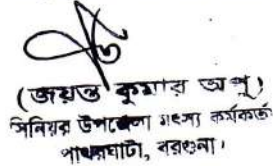 (জয়ন্ত কুমার অপু)
সিনিয়র উপজেলা মৎস্য কর্মকর্তা
পাথরঘাটা, বরগুনা।